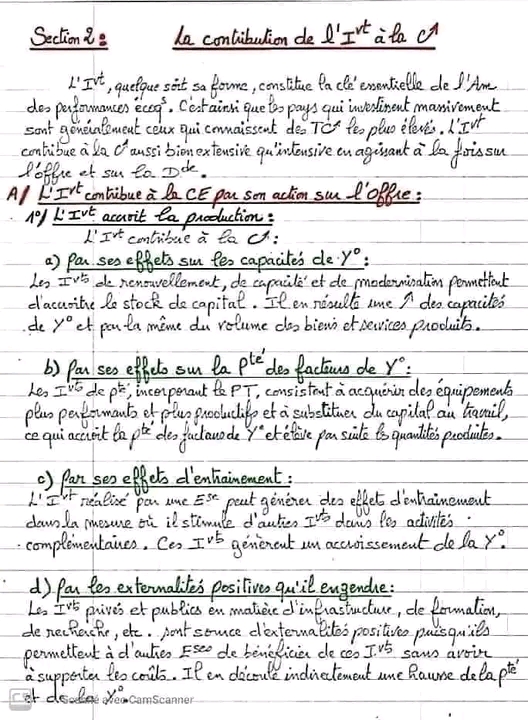 Section 2 : La contribution de l'Ivt à la C↗
L'Ivt, quelque soit sa forme, constitue la clé essentielle de l'Am
des performances écoqs. C'est ainsi que les pays qui investissent massivement
sont généralement ceux qui connaissent des TC↗ les plus élevés. L'Ivt
contribue à la C↗ aussi bien extensive qu'intensive en agissant à la fois sur
l'offre et sur la Dde.
A/ L'Ivt contribue à la CE par son action sur l'Offre :
1°/ L'Ivt accroit la production :
L'Ivt contribue à la C↗ :
a) Par ses effets sur les capacités de Y° :
Les Ivts de renouvellement, de capacité et de modernisation permettent
d'accroitre le stock de capital. Il en résulte une ↗ des capacités
de Y° et par la même du volume des biens et services produits.
b) Par ses effets sur la Pté des facteurs de Y° :
Les Ivts de pté, incorporant le PT, consistent à acquérir des équipements
plus performants et plus productifs et à substituer du capital au travail,
ce qui accroit la pté des facteurs de Y° et élève par suite les quantités produites.
c) Par ses effets d'entrainement :
L'Ivt réalisé par une Ese peut générer des effets d'entrainement
dans la mesure où il stimule d'autres Ivts dans les activités
complémentaires. Ces Ivts génèrent un accroissement de la Y°.
d) Par les externalités positives qu'il engendre :
Les Ivts privés et publics en matière d'infrastructure, de formation,
de recherche, etc. sont source d'externalités positives puisqu'ils
permettent à d'autres Eses de bénéficier de ces Ivts sans avoir
à supporter les coûts. Il en découle indirectement une hausse de la pté
et de la Y°.
CS Scanné avec CamScanner